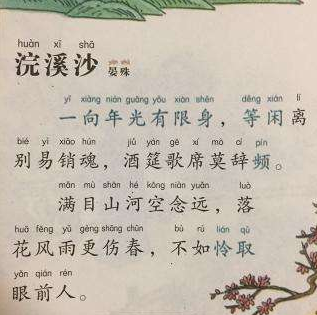 huàn xī shā
浣溪沙 晏殊
yī xiàng nián guāng yǒu xiàn shēn děng xián lí
一向年光有限身，等闲离
bié yì xiāo hún jiǔ yán gē xí mò cí pín
别易销魂，酒筵歌席莫辞频。
mǎn mù shān hé kōng niàn yuǎn luò
满目山河空念远，落
huā fēng yǔ gèng shāng chūn bù rú lián qǔ
花风雨更伤春，不如怜取
yǎn qián rén
眼前人。